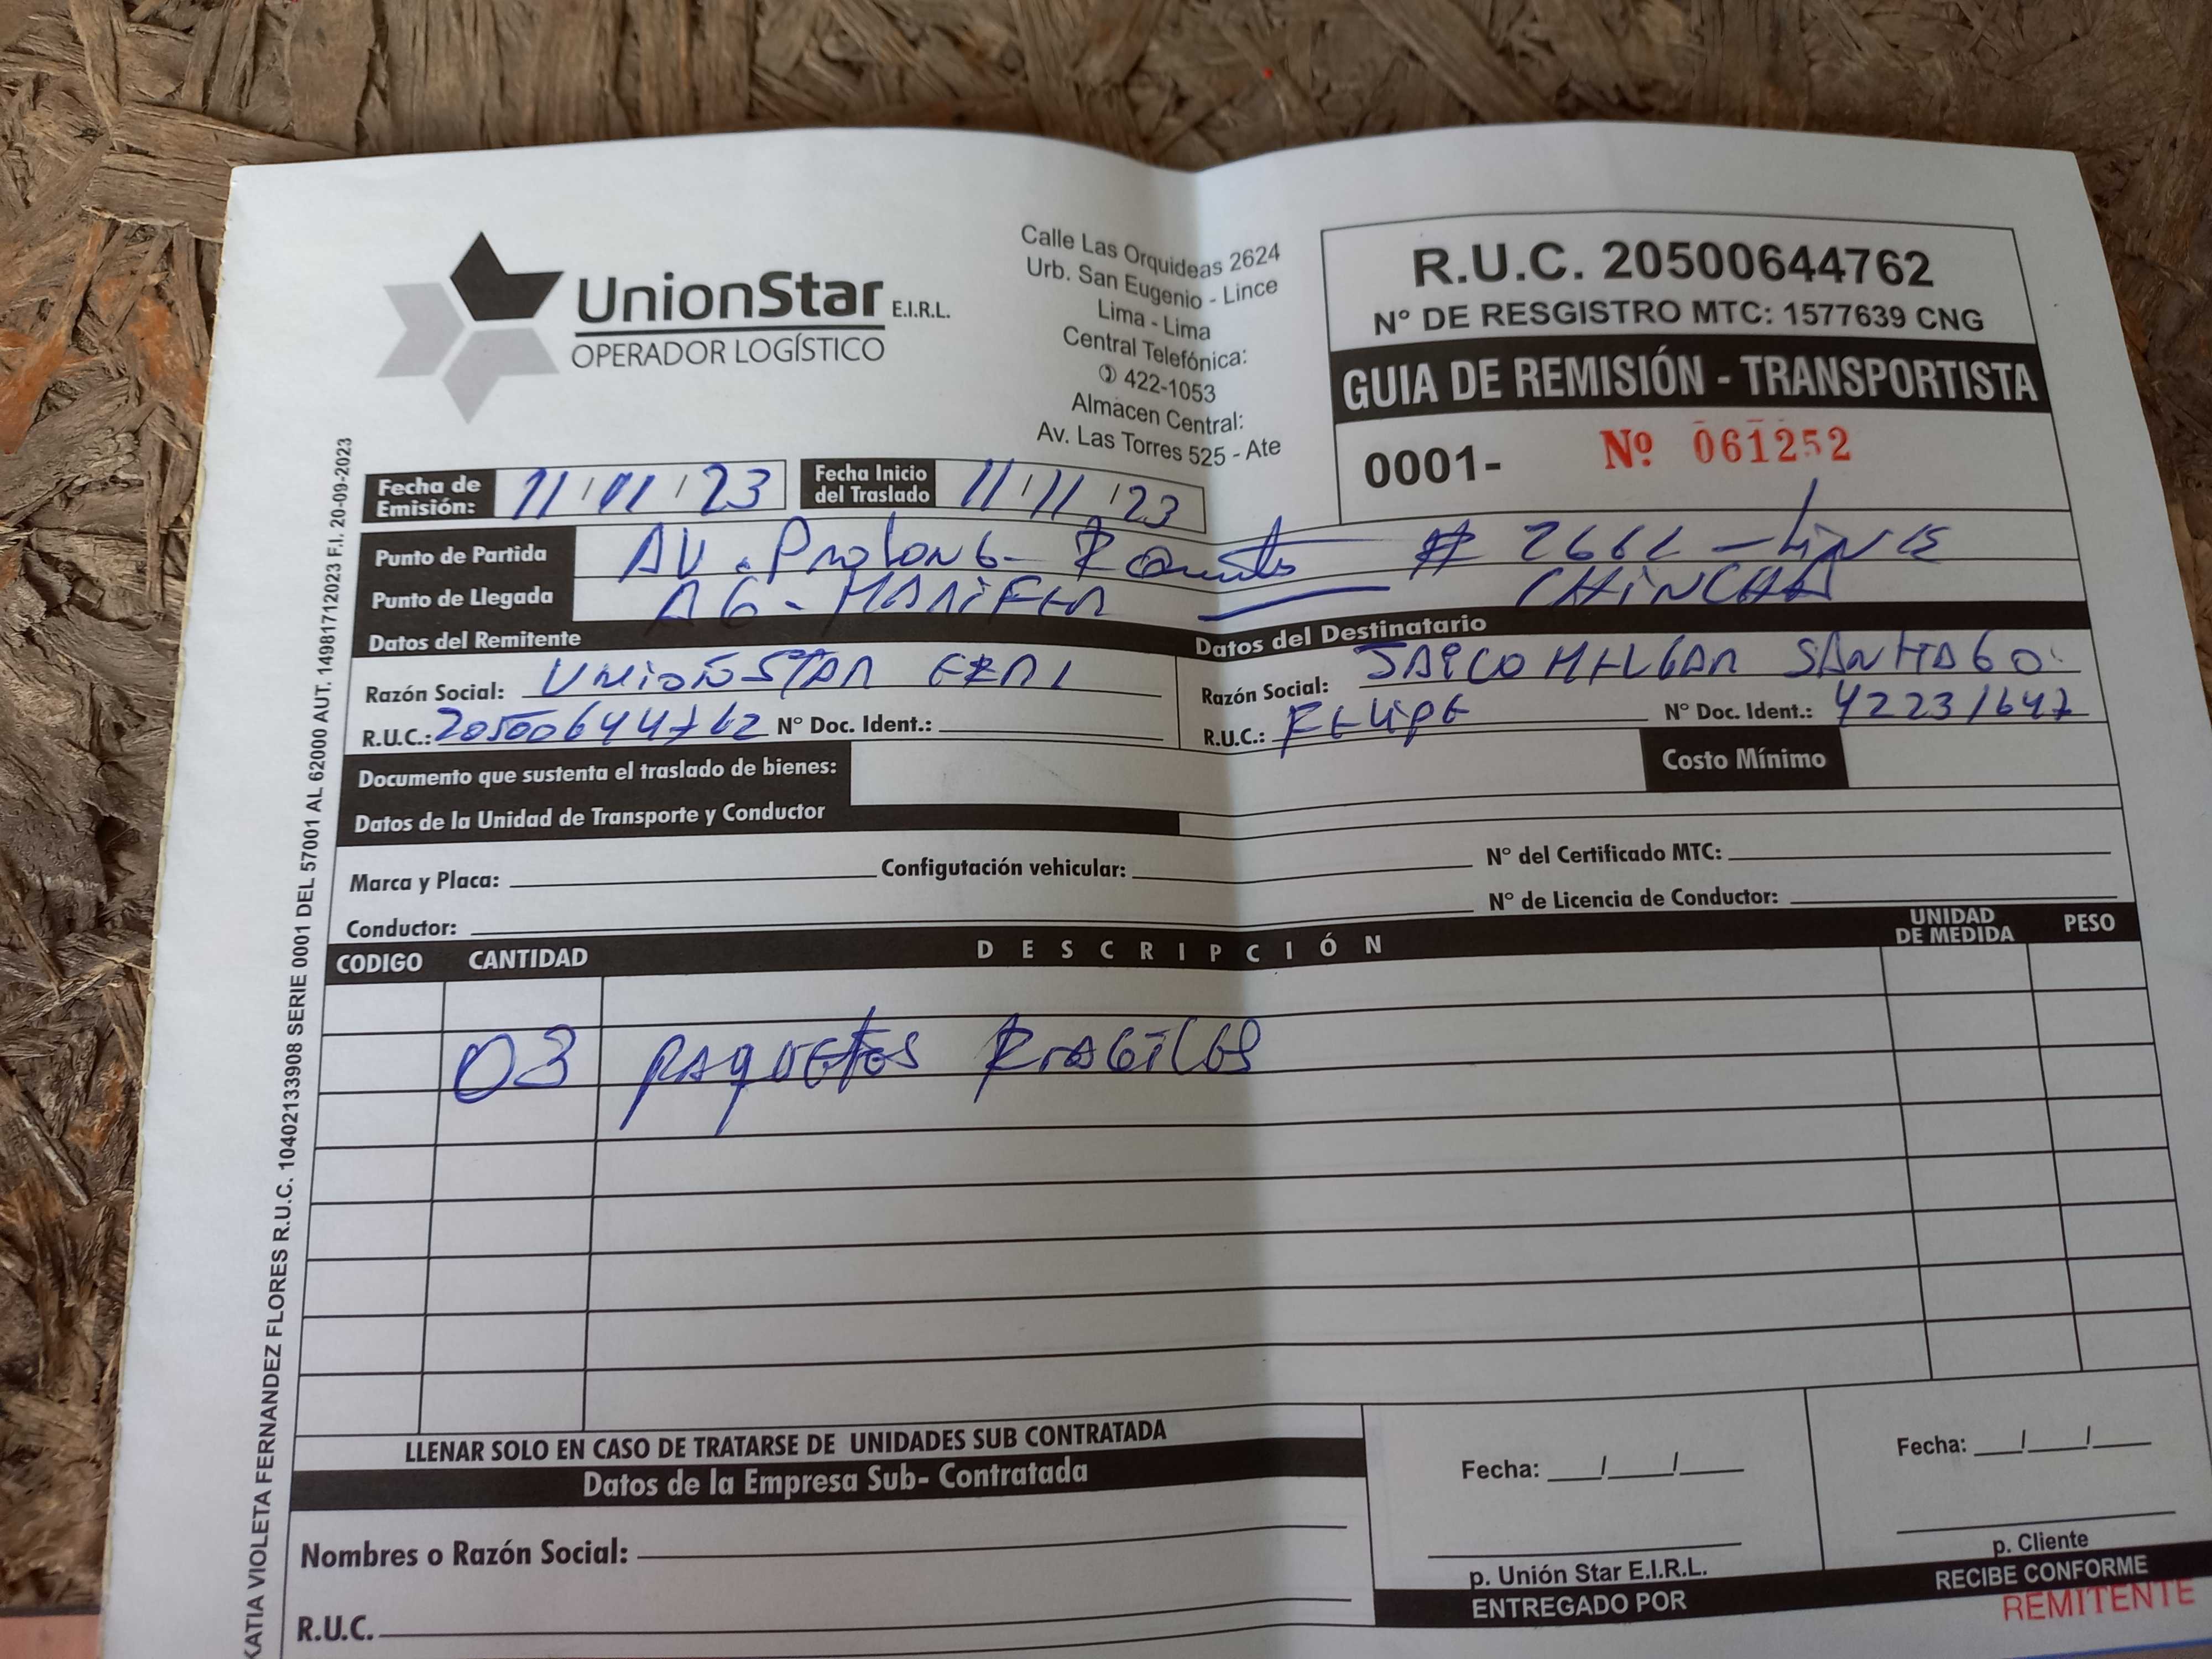 UnionStar E.I.R.L.
OPERADOR LOGÍSTICO
Calle Las Orquideas 2624
Urb. San Eugenio - Lince
Lima - Lima
Central Telefónica:
422-1053
Almacen Central:
Av. Las Torres 525 - Ate
R.U.C. 20500644762
N° DE RESGISTRO MTC: 1577639 CNG
GUIA DE REMISIÓN - TRANSPORTISTA
0001- Nº 061252
Fecha de Emisión: 11/11/23 Fecha Inicio del Traslado 11/11/23
Punto de Partida AV. Prolong # 2661 - Lince
Punto de Llegada AG - CHINCHA
Datos del Remitente Datos del Destinatario
Razón Social: UNIONSTAR Razón Social: MELGAR SANTIAGO
R.U.C.: 20500644762 N° Doc. Ident.: R.U.C.: FELIPE N° Doc. Ident.: 42231647
Documento que sustenta el traslado de bienes: Costo Mínimo
Datos de la Unidad de Transporte y Conductor
Marca y Placa: Configutación vehicular: N° del Certificado MTC:
Conductor: N° de Licencia de Conductor:
CODIGO CANTIDAD DESCRIPCIÓN UNIDAD DE MEDIDA PESO
03 PAQUETES FRAGILES
LLENAR SOLO EN CASO DE TRATARSE DE UNIDADES SUB CONTRATADA
Datos de la Empresa Sub- Contratada
Nombres o Razón Social:
R.U.C.
Fecha: / /
p. Unión Star E.I.R.L.
ENTREGADO POR
Fecha: / /
p. Cliente
RECIBE CONFORME
REMITENTE
KATIA VIOLETA FERNANDEZ FLORES R.U.C. 10402133908 SERIE 0001 DEL 57001 AL 62000 AUT. 14981712023 F.I. 20-09-2023